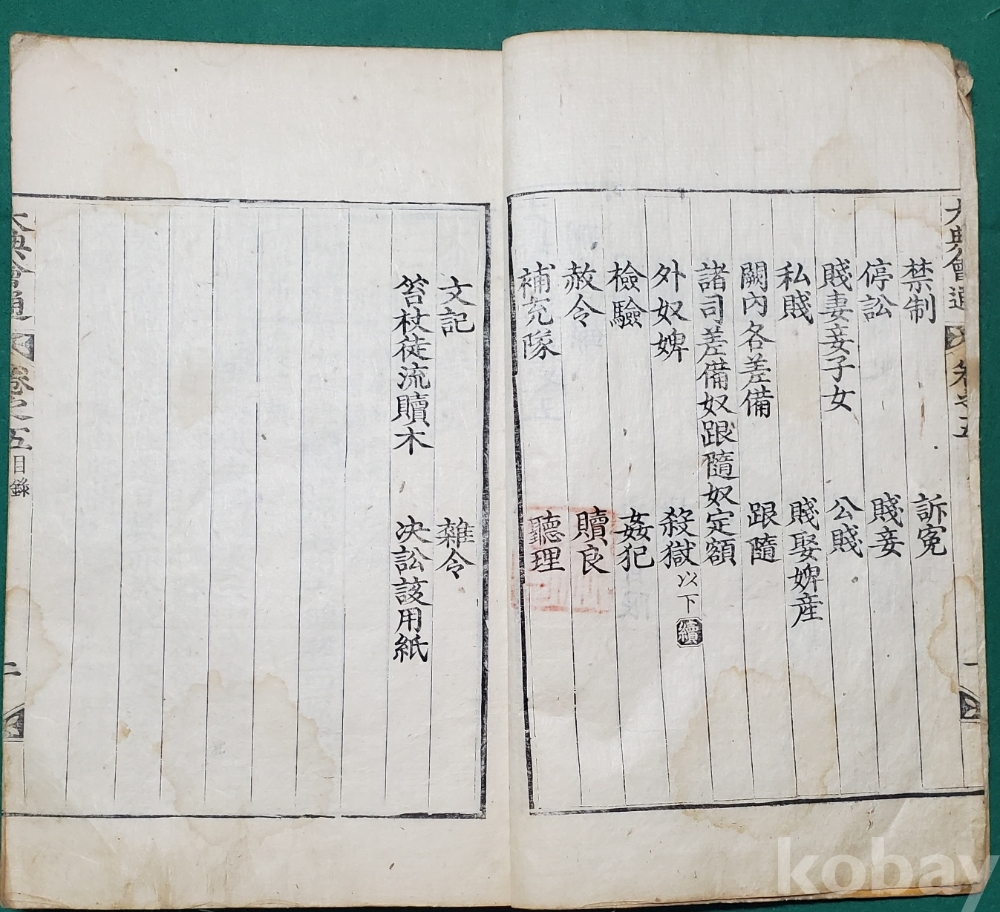 大典會通 卷之五 一
禁制 訴冤
停訟 賤妾
賤妻妾子女 公賤
私賤 賤娶婢産
闕內各差備 跟隨
諸司差備奴跟隨奴定額
外奴婢 殺獄以下續
檢驗 姦犯
赦令 贖良
補充隊 聽理
文記 雜令
笞杖徒流贖木 決訟該用紙
大典會通 卷之五 目錄 二
kobay